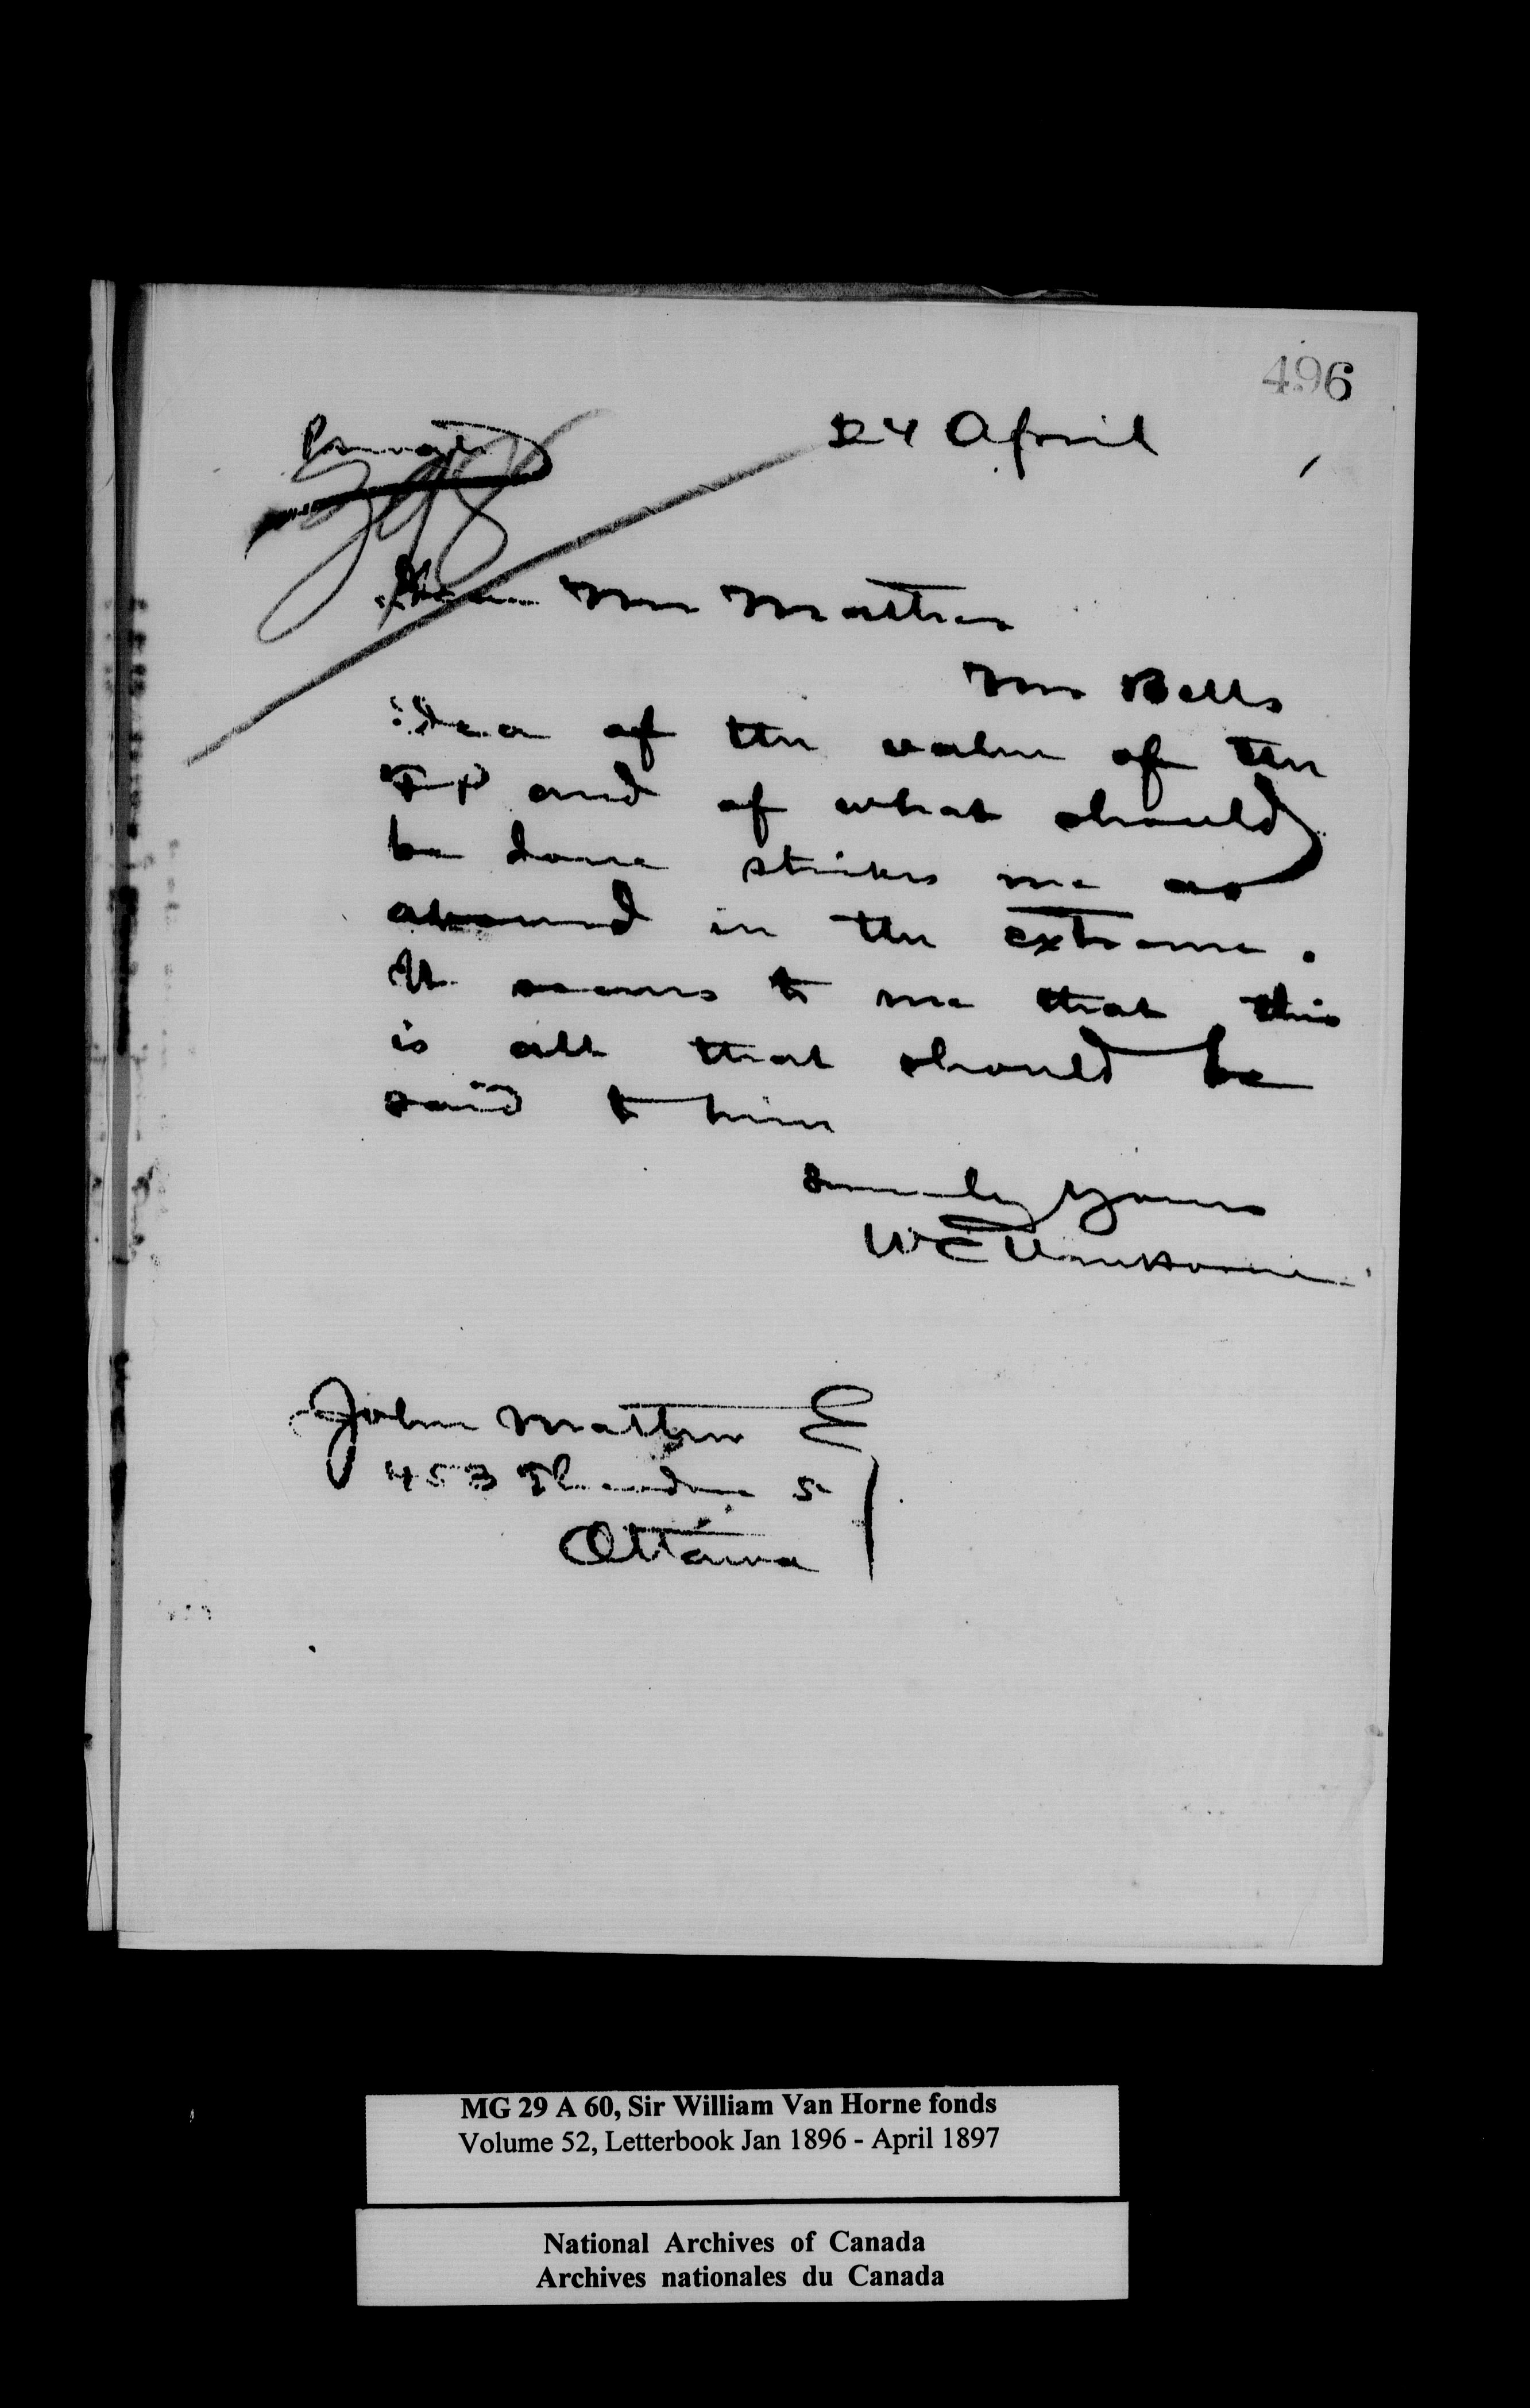 496
Private
24 April
Dear Mr Mather
Mr Bells
idea of the value of the
and of what should
be done strikes me as
absurd in the extreme.
It seems to me that this
is all that should be
said to him
Sincerely Yours
W C Van Horne
John Mather E
453 Theodore S
Ottawa
MG 29 A 60, Sir William Van Horne fonds
Volume 52, Letterbook Jan 1896 - April 1897
National Archives of Canada
Archives nationales du Canada